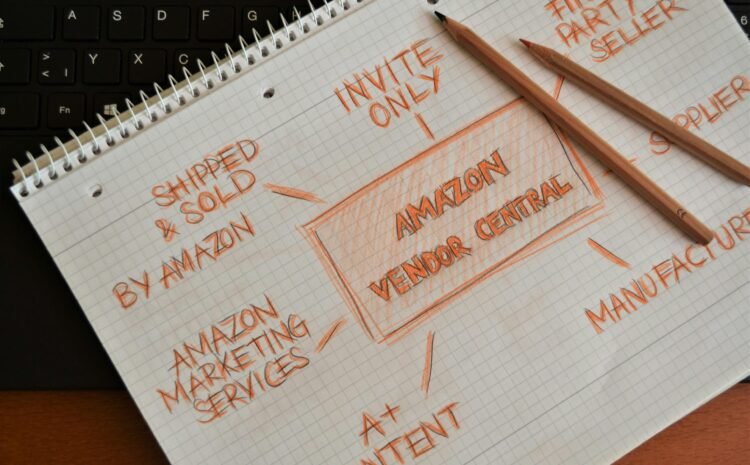 A S D F G
> < | Y X C
Fn
INVITE
ONLY
PARTY
SELLER
SUPPLIER
SHIPPED
& SOLD
BY AMAZON
AMAZON
VENDOR CENTRAL
MANUFACTUR
AMAZON
MARKETING
SERVICES
A+
NTENT